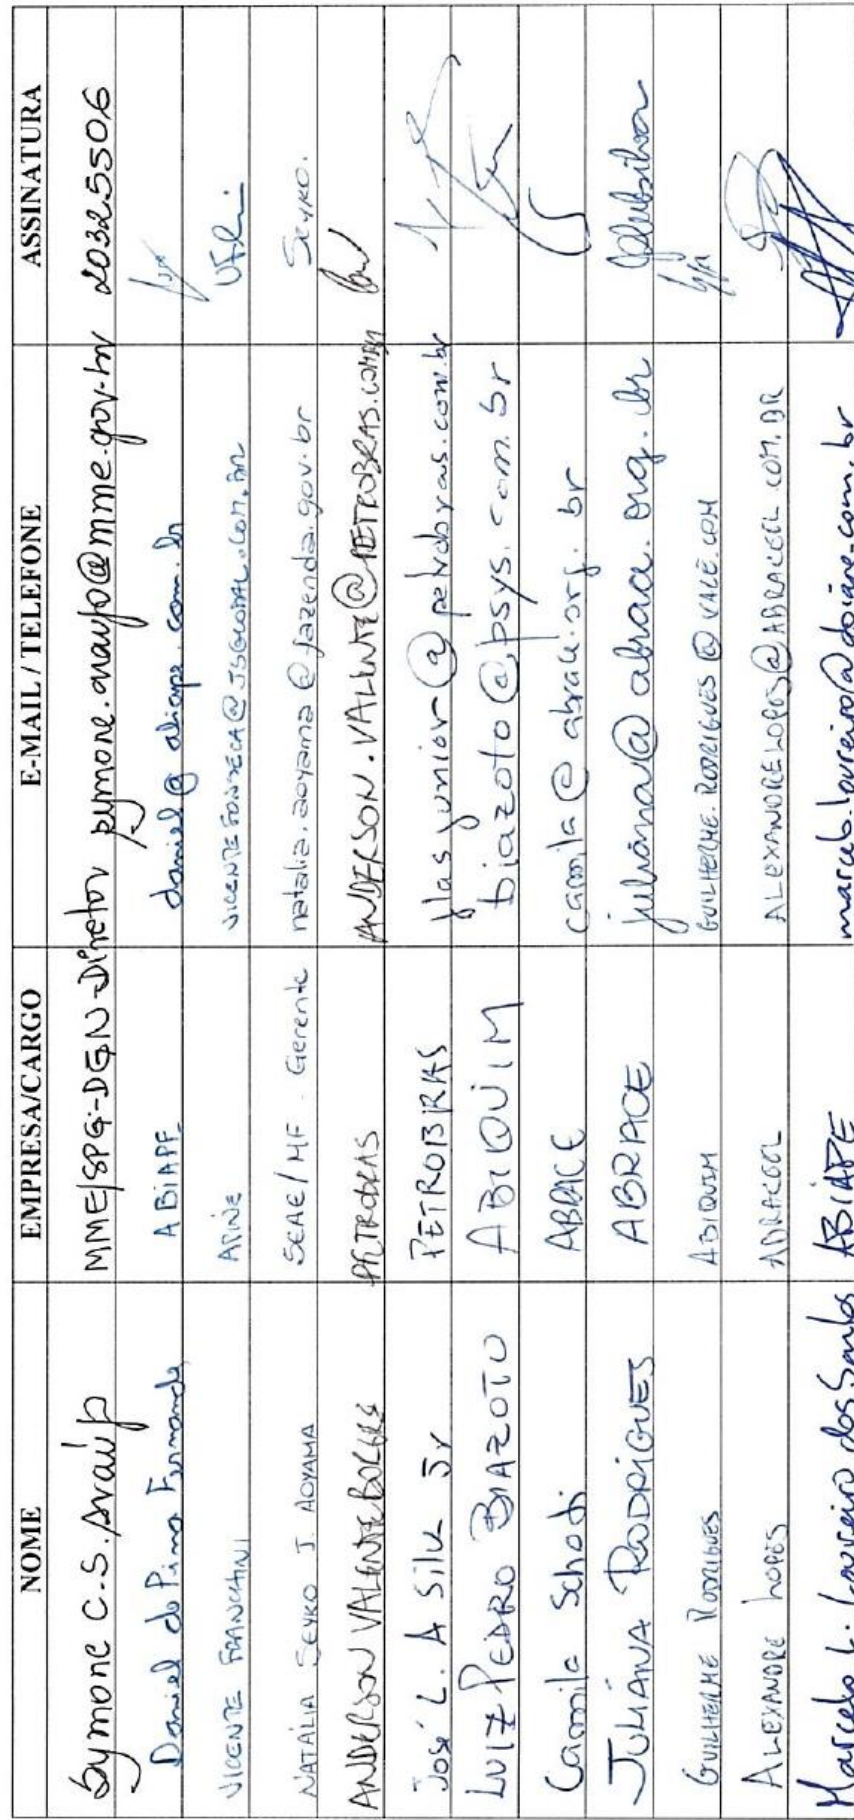 NOME EMPRESA/CARGO E-MAIL / TELEFONE ASSINATURA
Symone C.S. Araújo MME/SPG-DGN-Diretor symone.araujo@mme.gov.br 20325506
Daniel de Pina Fernandes ABIAPE daniel@abiape.com.br
VICENTE FRANCHINI APINE
NATÁLIA SEYKO J. AOYAMA SEAE/MF. Gerente natalia.aoyama@fazenda.gov.br SEYKO.
ANDERSON VALENTE BORGES PETROBRAS ANDERSON.VALENTE@PETROBRAS.COM.BR
José L. A Silva Jr PETROBRAS jlasjunior@petrobras.com.br
LUIZ PEDRO BIAZOTO ABIQUIM biazoto@psys.com.br
Camila Schoti ABRACE camila@abrace.org.br
JULIANA RODRIGUES ABRACE juliana@abrace.org.br
GUILHERME RODRIGUES ABIQUIM GUILHERME.RODRIGUES@VALE.COM
ALEXANDRE LOPES ABRACEEL ALEXANDRELOPES@ABRACEEL.COM.BR
Marcelo L. Loureiro dos Santos ABIAPE